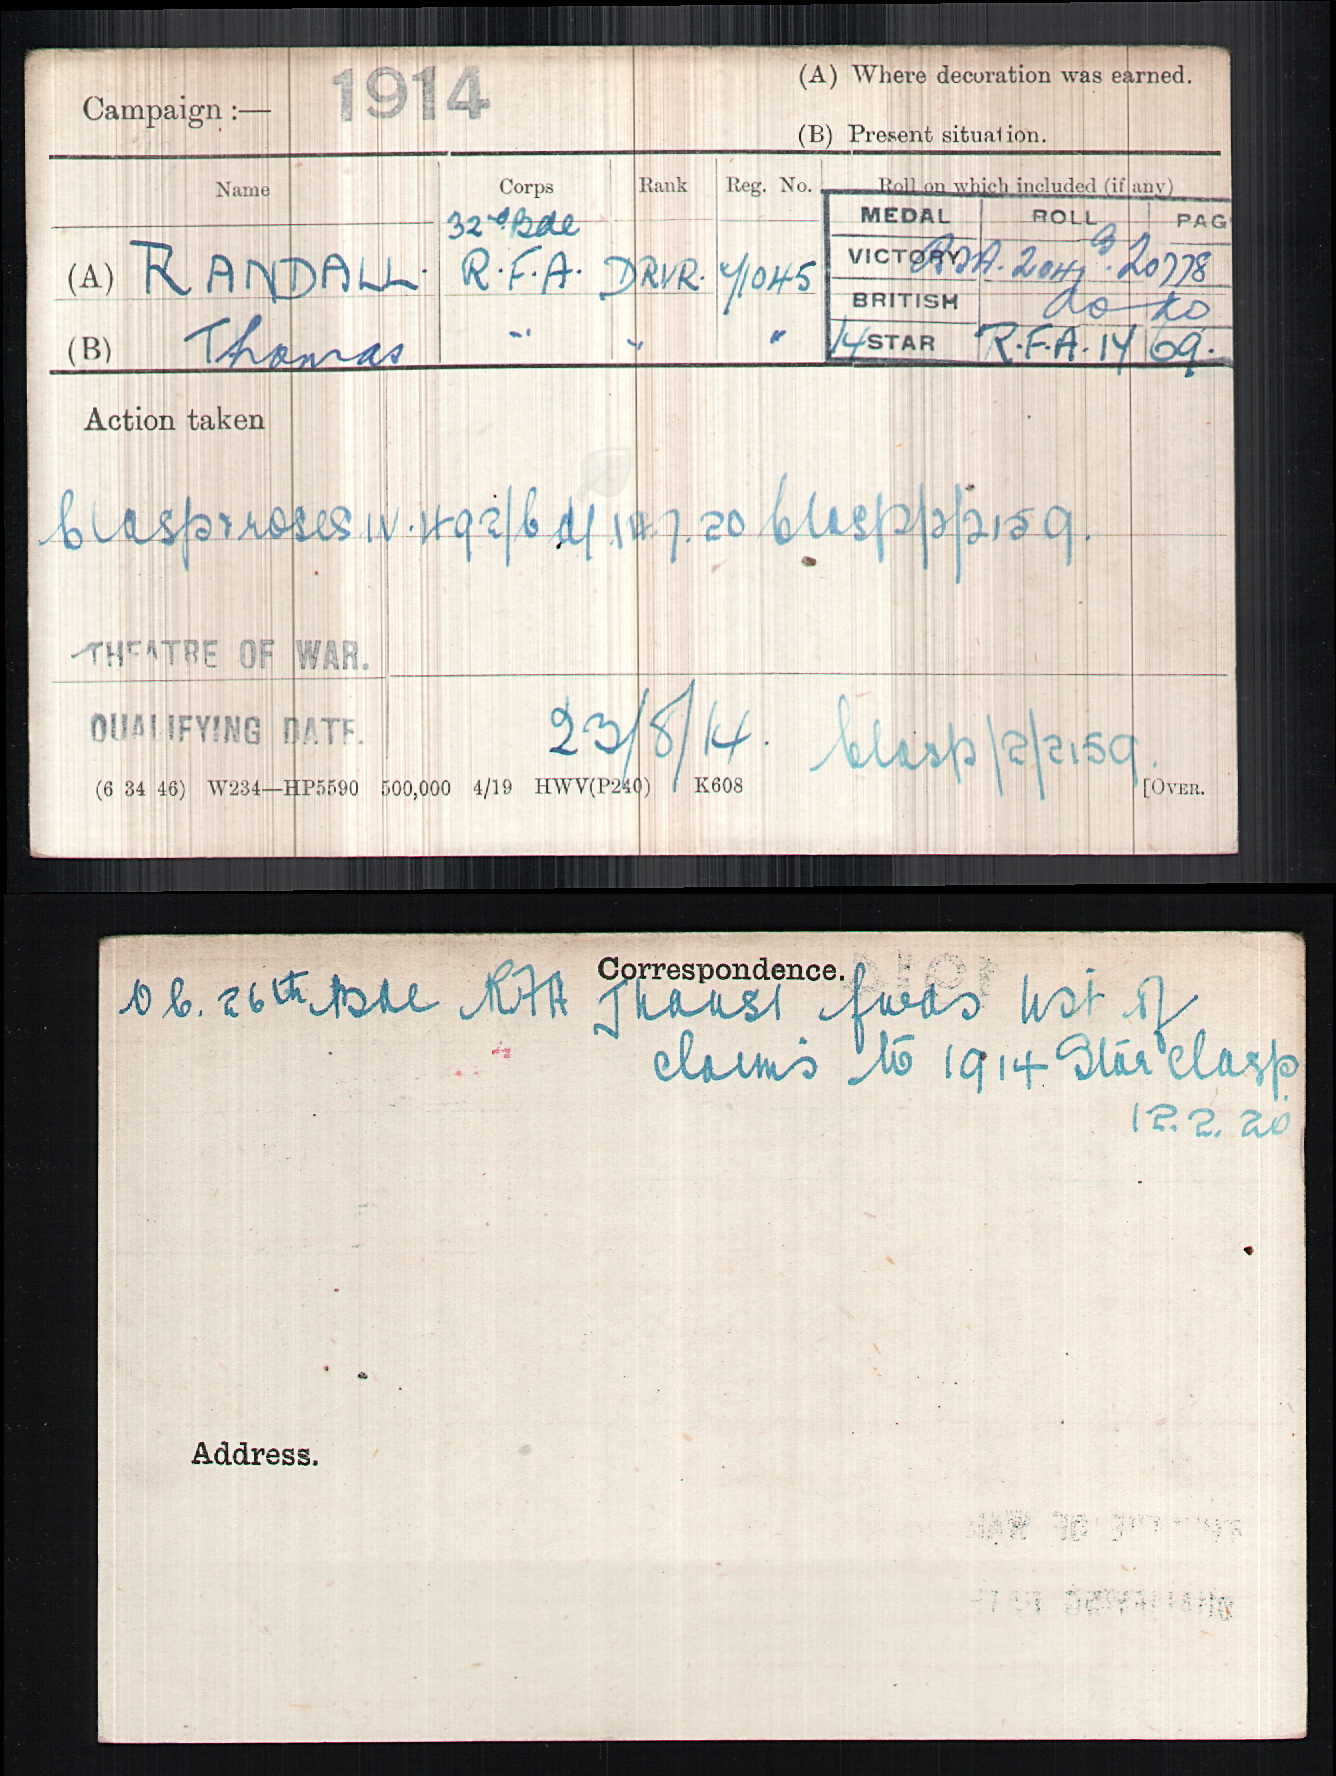 Campaign :— 1914
(A) Where decoration was earned.
(B) Present situation.
Name Corps Rank Reg. No. Roll on which included (if any)
MEDAL ROLL PAG
32nd Bde
(A) RANDALL. R.F.A. DRVR. 71045
VICTORY RFA. 204B. 20778
BRITISH do do
(B) Thomas " " "
14 STAR R.F.A. 14 69.
Action taken
Clasp & roses IV. 492/6 d/ 14.7.20 Clasp/2/2159.
THEATRE OF WAR.
QUALIFYING DATE. 23/8/14. Clasp/2/2159.
(6 34 46) W234—HP5590 500,000 4/19 HWV(P240) K608 [OVER.
Correspondence.
O C. 26th Bde RFA fwds list of
claims to 1914 Star Clasp
12.2.20
Address.